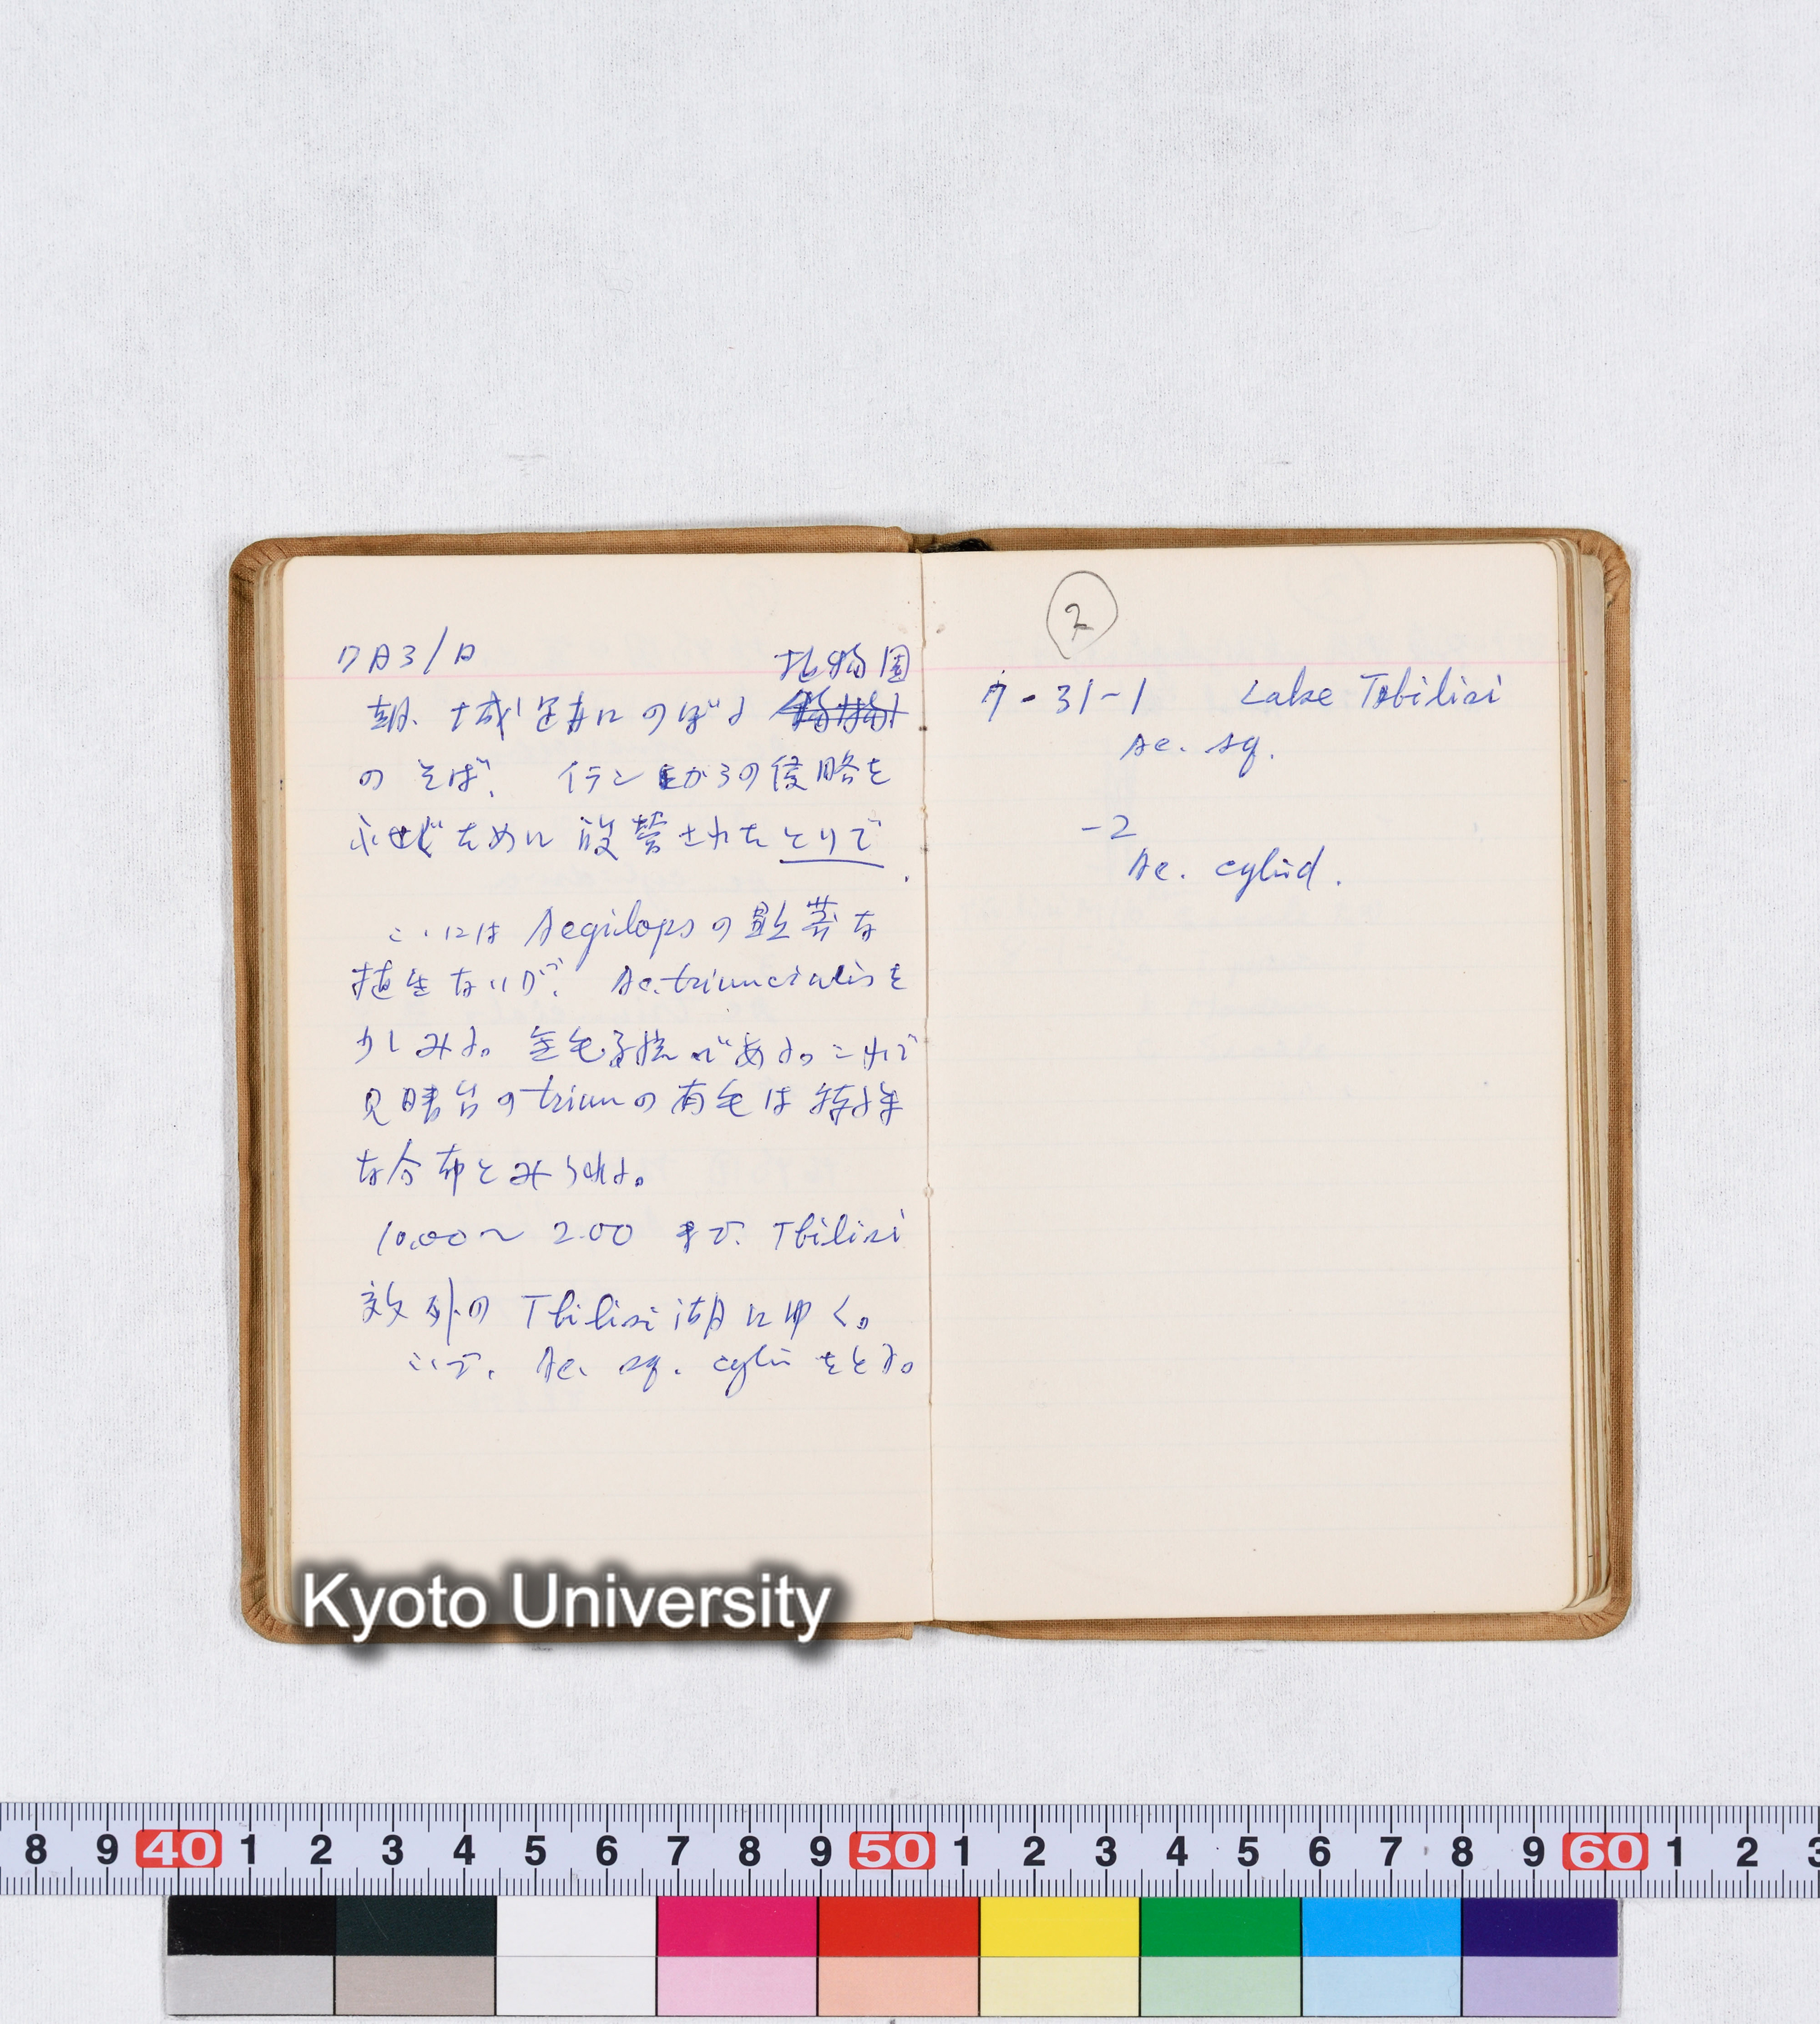 7月31日
植物園
朝、城塞にのぼる
のそば、イランからの侵略を
ふせぐために設営されたとりで.
こゝには Aegilopsの顕著な
植生ないが、Ae. triuncialisを
少しみる。無毛系統である。これで
見晴台のtriunの有毛は特殊
な分布とみられる。
10.00〜 2.00 まで、Tbilisi
郊外の Tbilisi湖にゆく。
こゝで、Ae. sq. cylin をとる。
7
7-31-1 Lake Tbilisi
Ae. sq.
-2
Ae. cylind.
Kyoto University
8 9 40 1 2 3 4 5 6 7 8 9 50 1 2 3 4 5 6 7 8 9 60 1 2 3